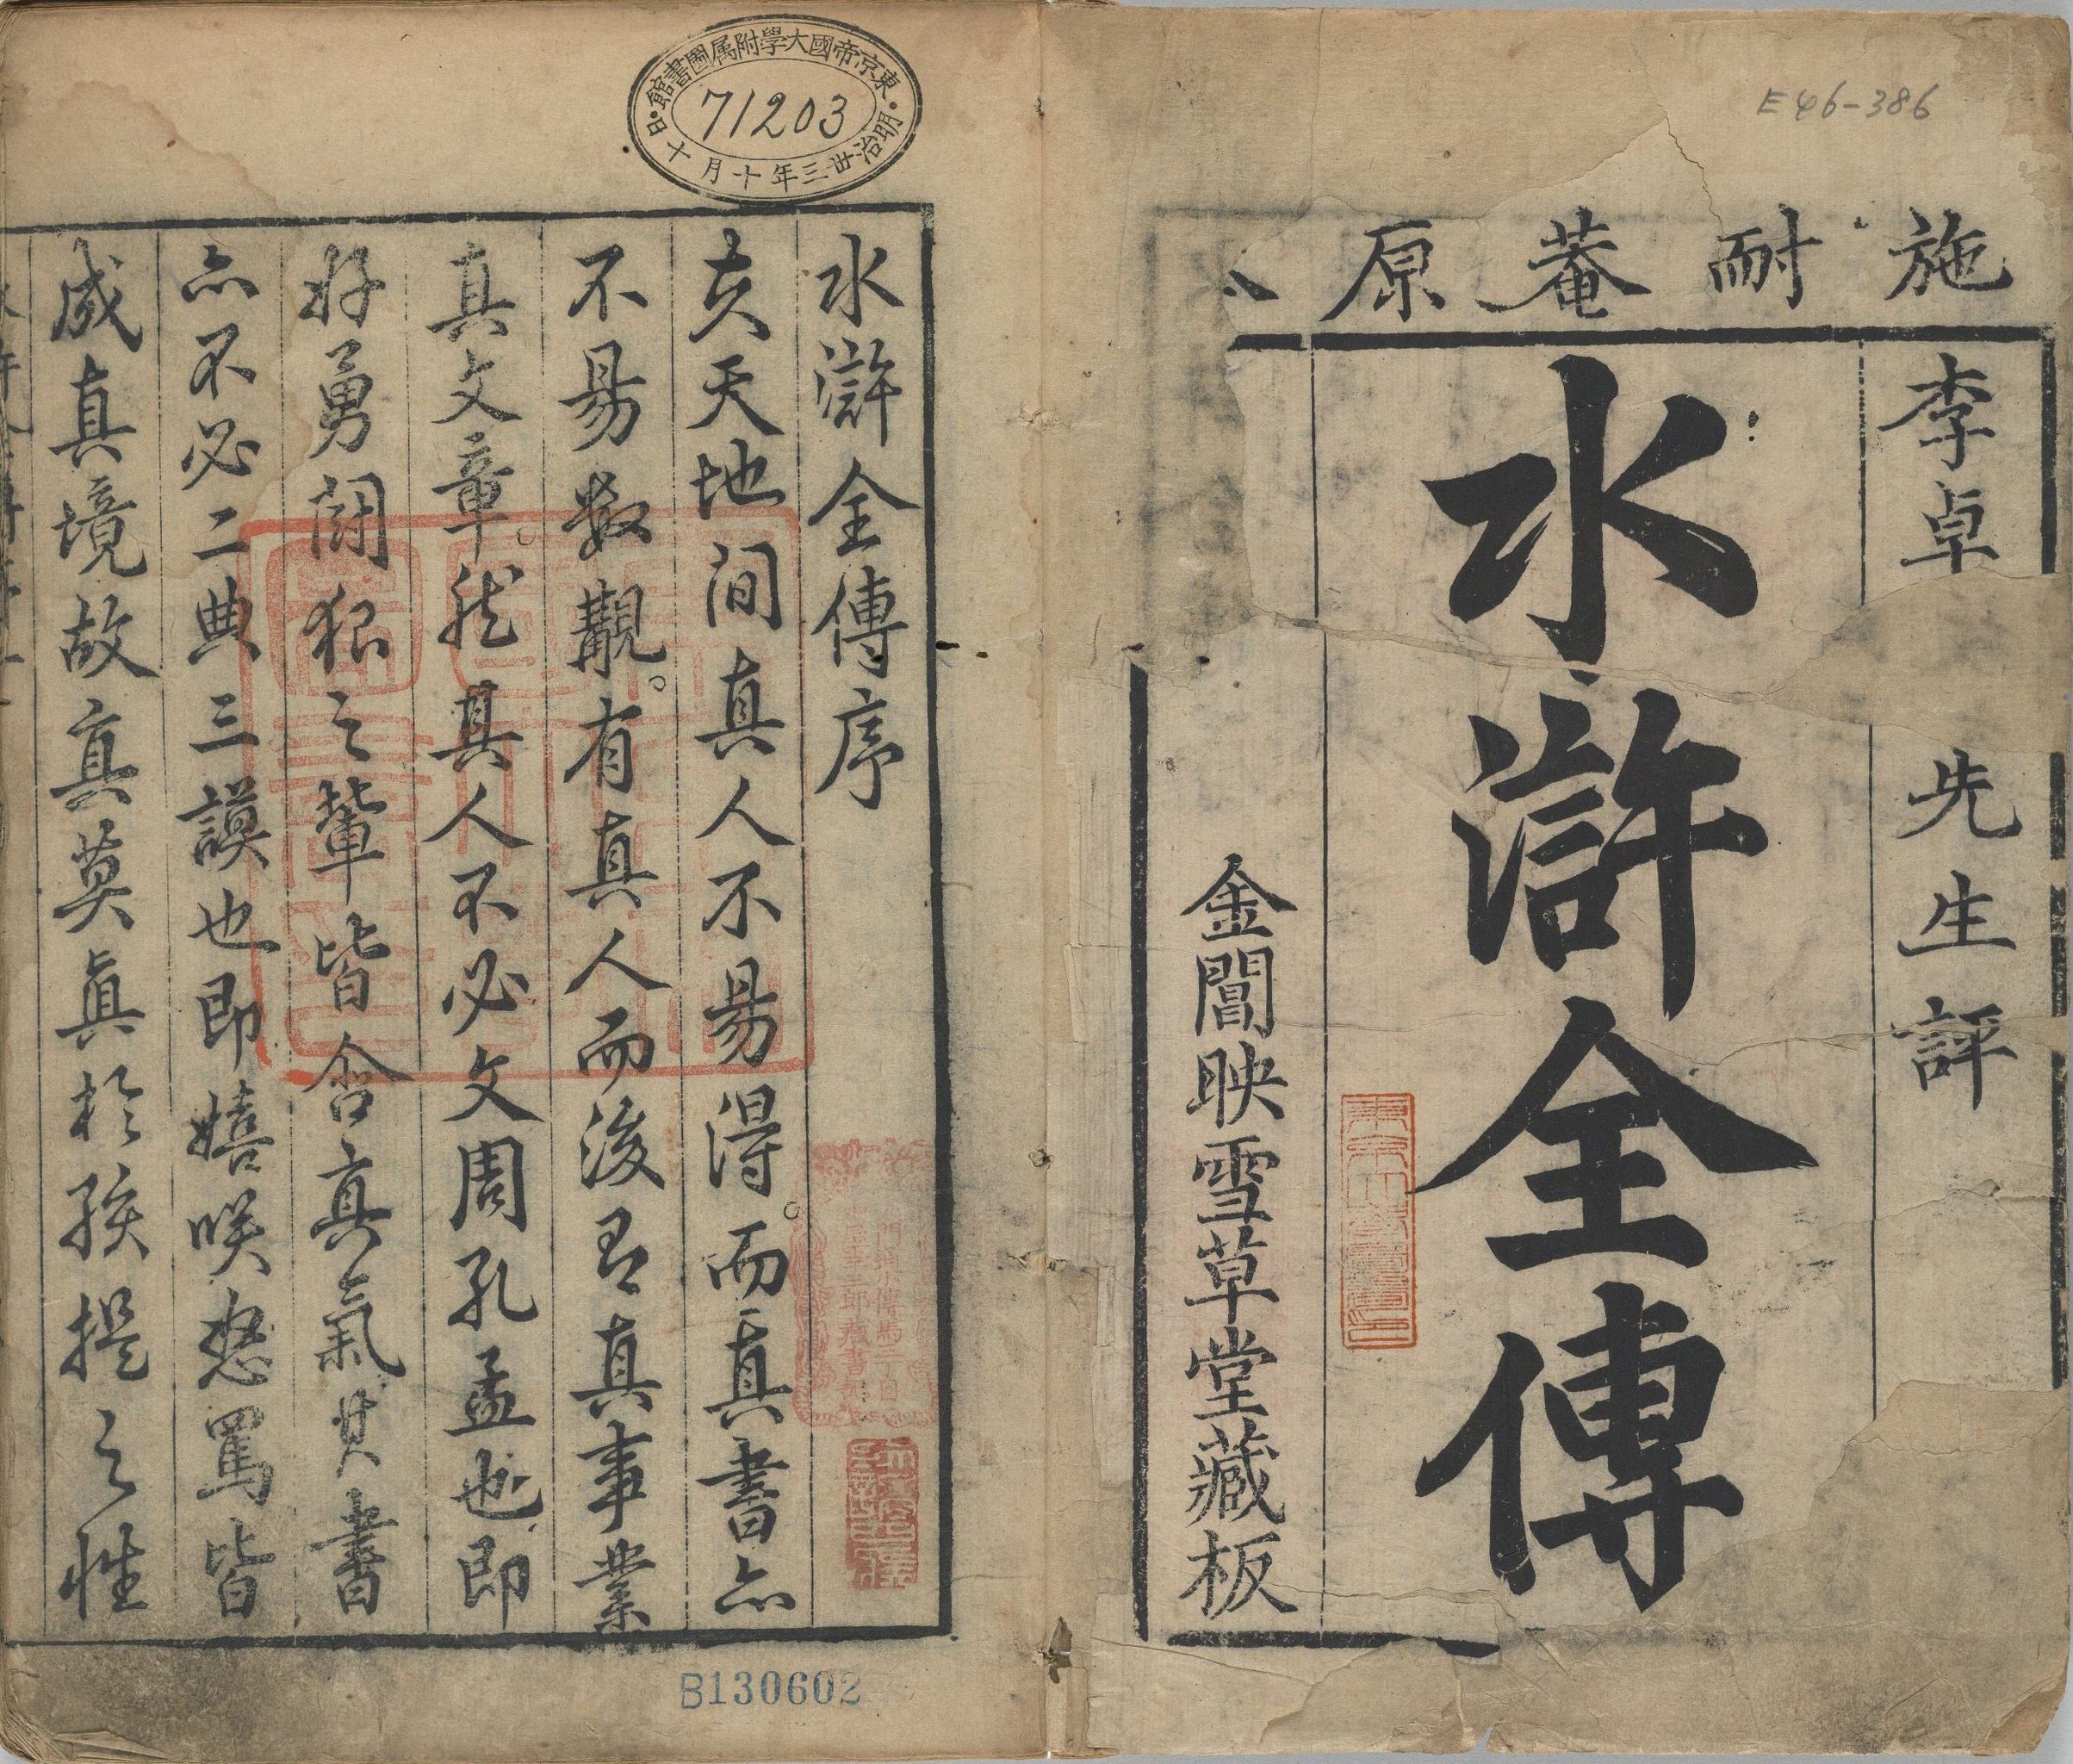 E46-386
施耐菴原
李卓 先生評
水滸全傳
金閶映雪草堂藏板
東京帝國大學附属圖書館
71203
明治卅三年十月十日
水滸全傳序
天地間真人不易得。而真書亦
不易数覯。有真人而後有真事業
真文章。然其人不必文周孔孟也即
好勇鬪狠之輩皆含真氣其書
亦不必二典三謨也即嬉咲怒罵皆
成真境故真莫真於孩提之性
B130602